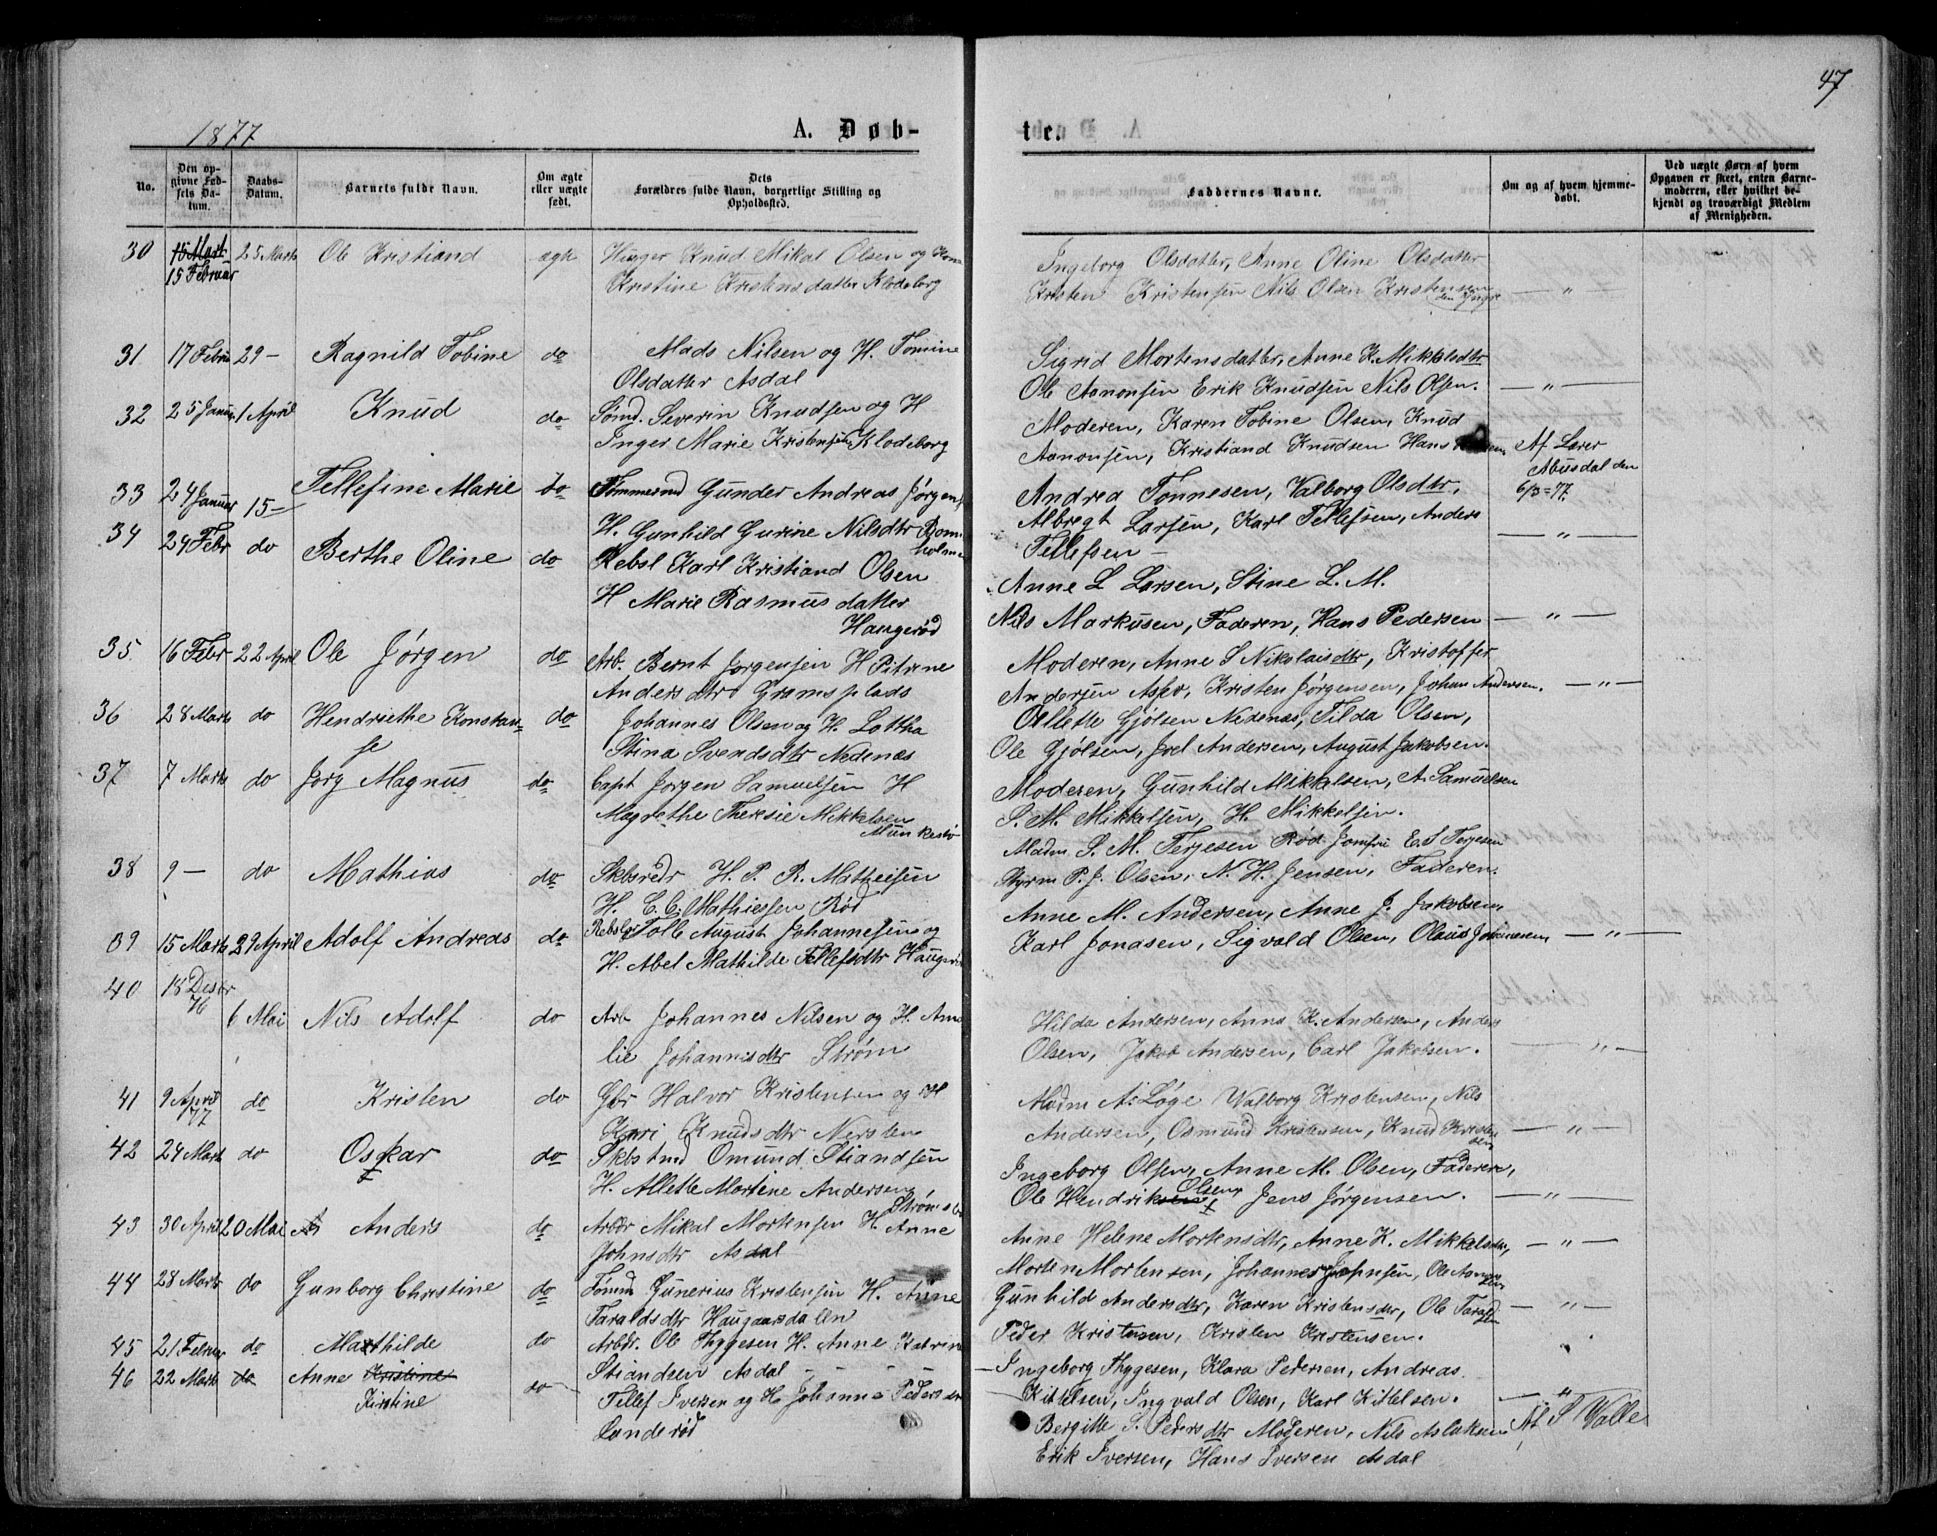 47
1877
A. Døb-
te.
No.
Den op-
givne Fød-
sels Da-
tum.
Daabs-
Datum.
Barnets fulde Navn.
Om ægte
eller uægte
født.
Dets
Forældres fulde Navn, borgerlige Stilling og
Opholdssted.
Faddernes Navne.
Om og af hvem hjemme-
døbt.
Ved uægte Børn af hvem
Opgaven er skeet, enten Barne-
moderen, eller hvilket be-
kjendt og troværdigt Medlem
af Menigheden.
30 15 Mart 25 Marts Ole Kristiand ægte Knud Mikal Olsen og Kone
15 Februar Kristine Kristensdatter Klodeborg
Ingeborg Olsdatter, Anne Oline Olsdatter
Kristen Kristensen Nils Olsen Kristensen — " —
den Yngre
31 17 Febru 29 — Ragnild Tobine do Mads Nilsen og H. Tomine
Olsdatter Asdal
Sigrid Mortensdatter, Anne K. Mikkelsdtr
Ole Aanonsen Erik Knudsen Nils Olsen. — " —
32 25 Januar 1 April Knud do Sømd. Severin Knudsen og H
Inger Marie Kristensen Klodeborg
Moderen, Karen Tobine Olsen, Knud
Aanonsen, Kristiand Knudsen Hans
Af Lærer
Abusdal den
6/3=77.
33 24 Januar 15 — Tellefine Marie do Tømmermd Gunder Andreas Jørgens
H. Gunhild Gurine Nilsdtr Born
holm
Andrea Tønnesen, Valborg Olsdtr,
Albregt Larsen, Karl Tellefsen, Anders
Tellefsen — — " —
34 24 Febr do Berthe Oline do Rebsl Karl Kristiand Olsen
H Marie Rasmusdatter
Haugerød
Anne L Larsen, Stine L. M.
Nils Markusen, Faderen, Hans Pedersen — " —
35 16 Febr 22 April Ole Jørgen do Arb. Bernt Jørgensen H Pitrine
Andersdtr Gramsplads
Moderen, Anne S Nikolaisdtr, Kristoffer
Andersen Aspø, Kristen Jørgensen, Johan Andersen. — " —
36 28 Marts do Hendriethe Konstan- do Johannes Olsen og H. Lottha
se Stina Svendsdtr Nedenæs
Oellette Gjølsen Nedenæs, Tilda Olsen,
Ole Gjølsen, Joel Andersen, August Jakobsen.
37 7 Marts do Jørg Magnus do Capt Jørgen Samuelsen H
Magrethe Theresie Mikkelsen
Munkesto
Moderen, Gunhild Mikkelsen, A. Samuelsen
S. M. Mikkelsen, H. Mikkelsen.
38 9 — do Mathias do Skbsredr H. P. R. Matheisen
H. C. C. Mathiesen Rød
Madm S. M. Terjesen Rød Jomfru E. S Terjesen
Styrm P. J. Olsen, N. H. Jensen, Faderen.
39 15 Marts 29 April Adolf Andreas do Rebsl Tolle August Johannesen og
H. Abel Mathilde Tellefsdtr Haugerød
Anne M. Andersen, Anne J. Jakobsen,
Karl Jonasen, Sigvald Olsen, Olaus Johannesen, — " —
40 18 Desbr
76
6 Mai Nils Adolf do Arb Johannes Nilsen og H. Ama
lie Johannisdtr Strøm
Hilda Andersen, Anna K. Andersen, Anders
Olsen, Jakob Andersen, Carl Jakobsen. — " —
41 9 April
77 do Kristen do Gbr Halvor Kristensen og H
Kari Knudsdtr Nersten
Madm A. Løge Valborg Kristensen, Nils
Andersen, Osmund Kristensen, Knud Kristen — " —
sen
42 24 Marts do Oskar do Skbstmd Omund Stiandsen
H. Allette Mortine Andersen
Strøms
Ingeborg Olsen, Anne M. Olsen, Faderen,
Ole Hendriksen Olsen Jens Jørgensen. — " —
43 30 April 20 Mai Anders do Arbdr Mikal Mortensen H. Anne
Johnsdtr Asdal
Anne Helene Mortensdtr, Anne K. Mikkelsdtr, — " —
Morten Mortensen, Johannes Johnsen, Ole Aanon
sen
44 28 Marts do Gunborg Christine do Tømm Gunerius Kristensen H. Anne
Taraldsdtr Haugaasdalen
Gunhild Andersdtr, Karen Kristensdtr, Ole Tarald — " —
sen
Peder Kristensen, Kristen Kristensen.
45 21 Februar do Mathilde do Arbdr. Ole Thygesen H. Anne Katrin
Stiandsen Asdal — — — — —
— Ingeborg Thygesen, Klara Pedersen, Andreas
Kittelsen, Ingvald Olsen, Karl Kittelsen. — " —
46 22 Marts do Anne Kristine do Tellef Iversen og H. Johanne Pedersdtr
Kirstine Landerød
Bergitte S. Pedersdtr Moderen, Nils Aslaksen
Erik Iversen, Hans Iversen Asdal
Af S Valle